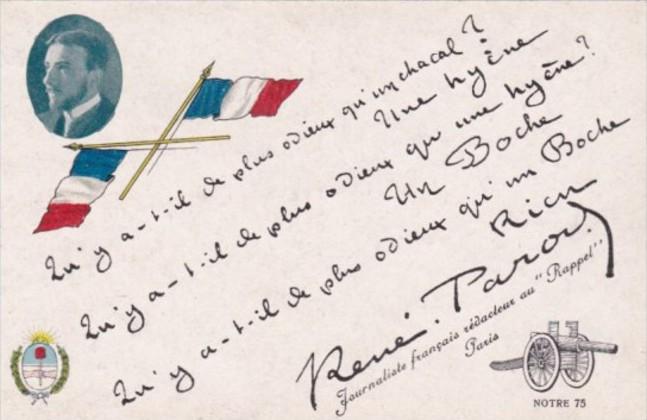 Qu'y a-t-il de plus odieux qu'un chacal?
Une hyène
Qu'y a-t-il de plus odieux qu'une hyène?
Un Boche
Qu'y a-t-il de plus odieux qu'un Boche
Rien
René. Parod
Journaliste français rédacteur au "Rappel"
Paris
NOTRE 75